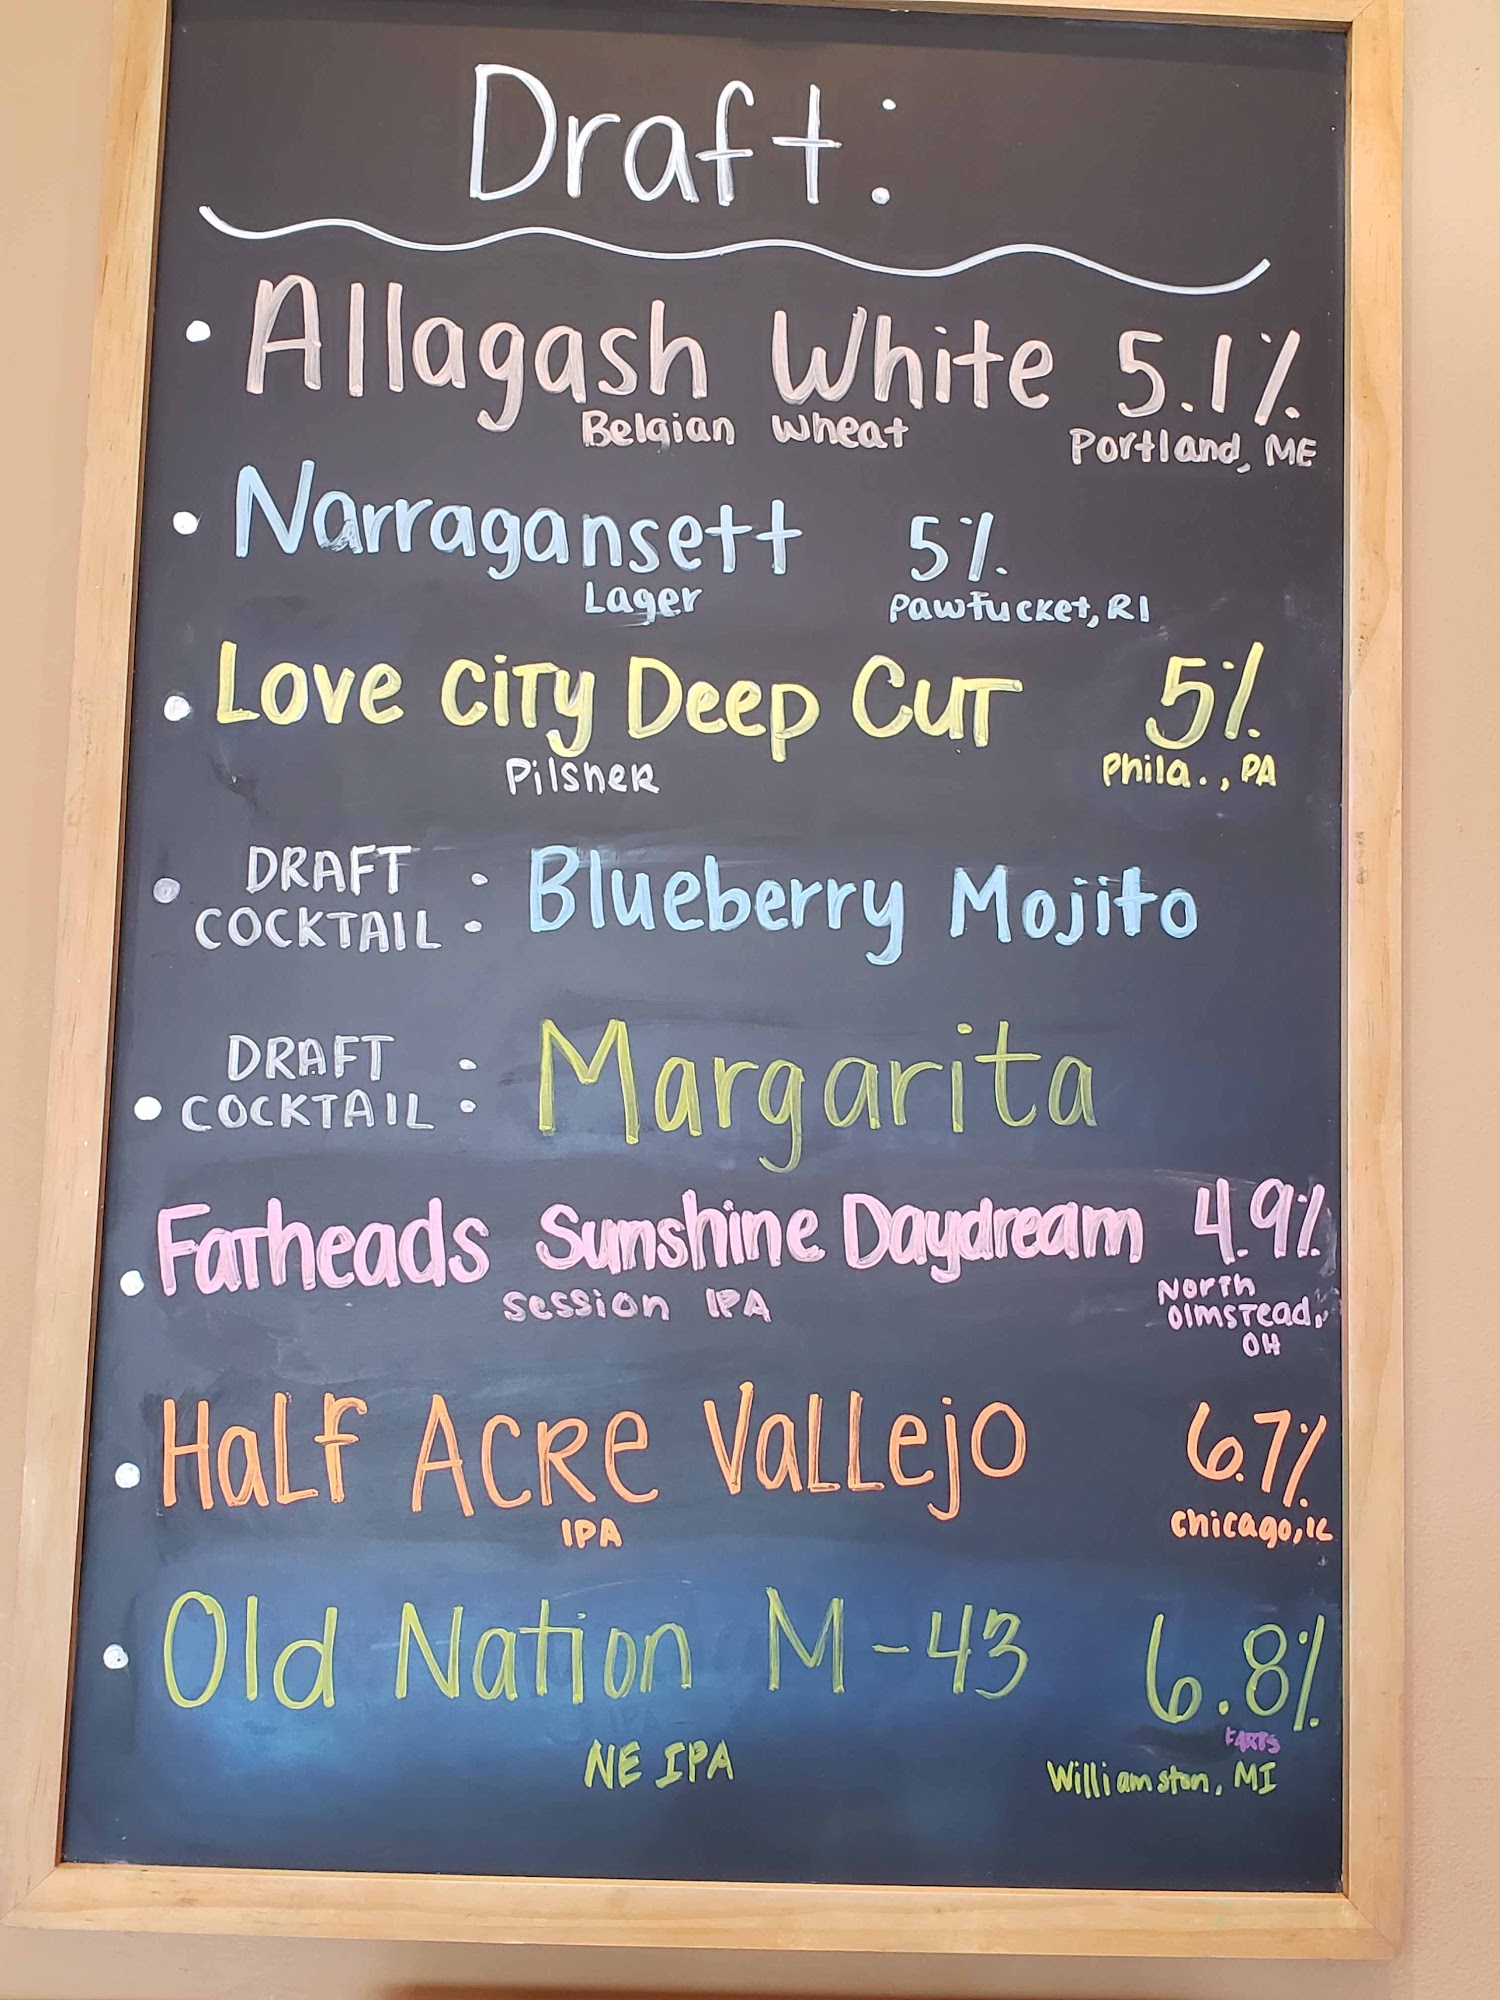 Draft:
Allagash White 5.1%
Belgian Wheat Portland, ME
Narragansett 5%
Lager Pawtucket, RI
Love City Deep Cut 5%
Pilsner Phila., PA
DRAFT COCKTAIL: Blueberry Mojito
DRAFT COCKTAIL: Margarita
Fatheads Sunshine Daydream 4.9%
Session IPA North
Olmstead,
OH
Half Acre Vallejo 6.7%
IPA Chicago, IL
Old Nation M-43 6.8%
Farts
NE IPA Williamston, MI